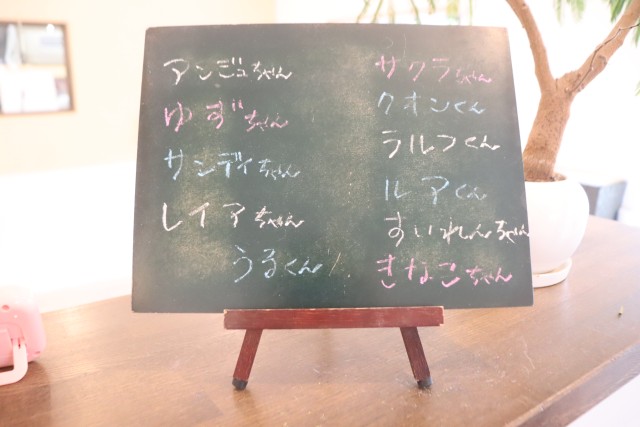 アンジュちゃん
ゆずちゃん
サンディちゃん
レイアちゃん
うるくん
サクラちゃん
クオンくん
ラルフくん
ルアくん
すいれんちゃん
きなこちゃん